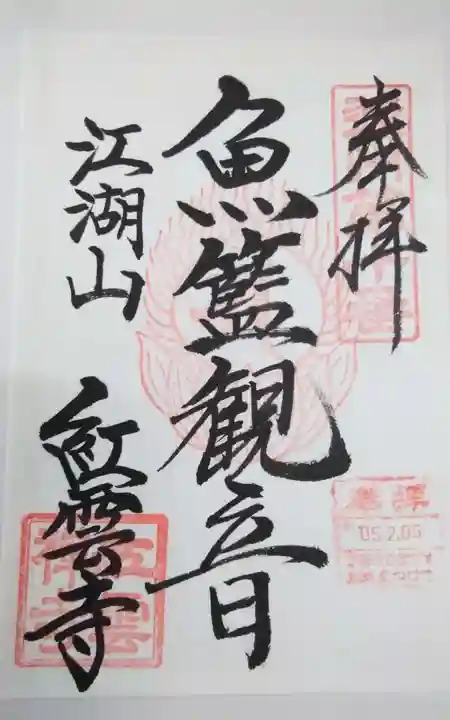 奉拝
魚籃観音
江湖山
紅雲寺
05.2.05